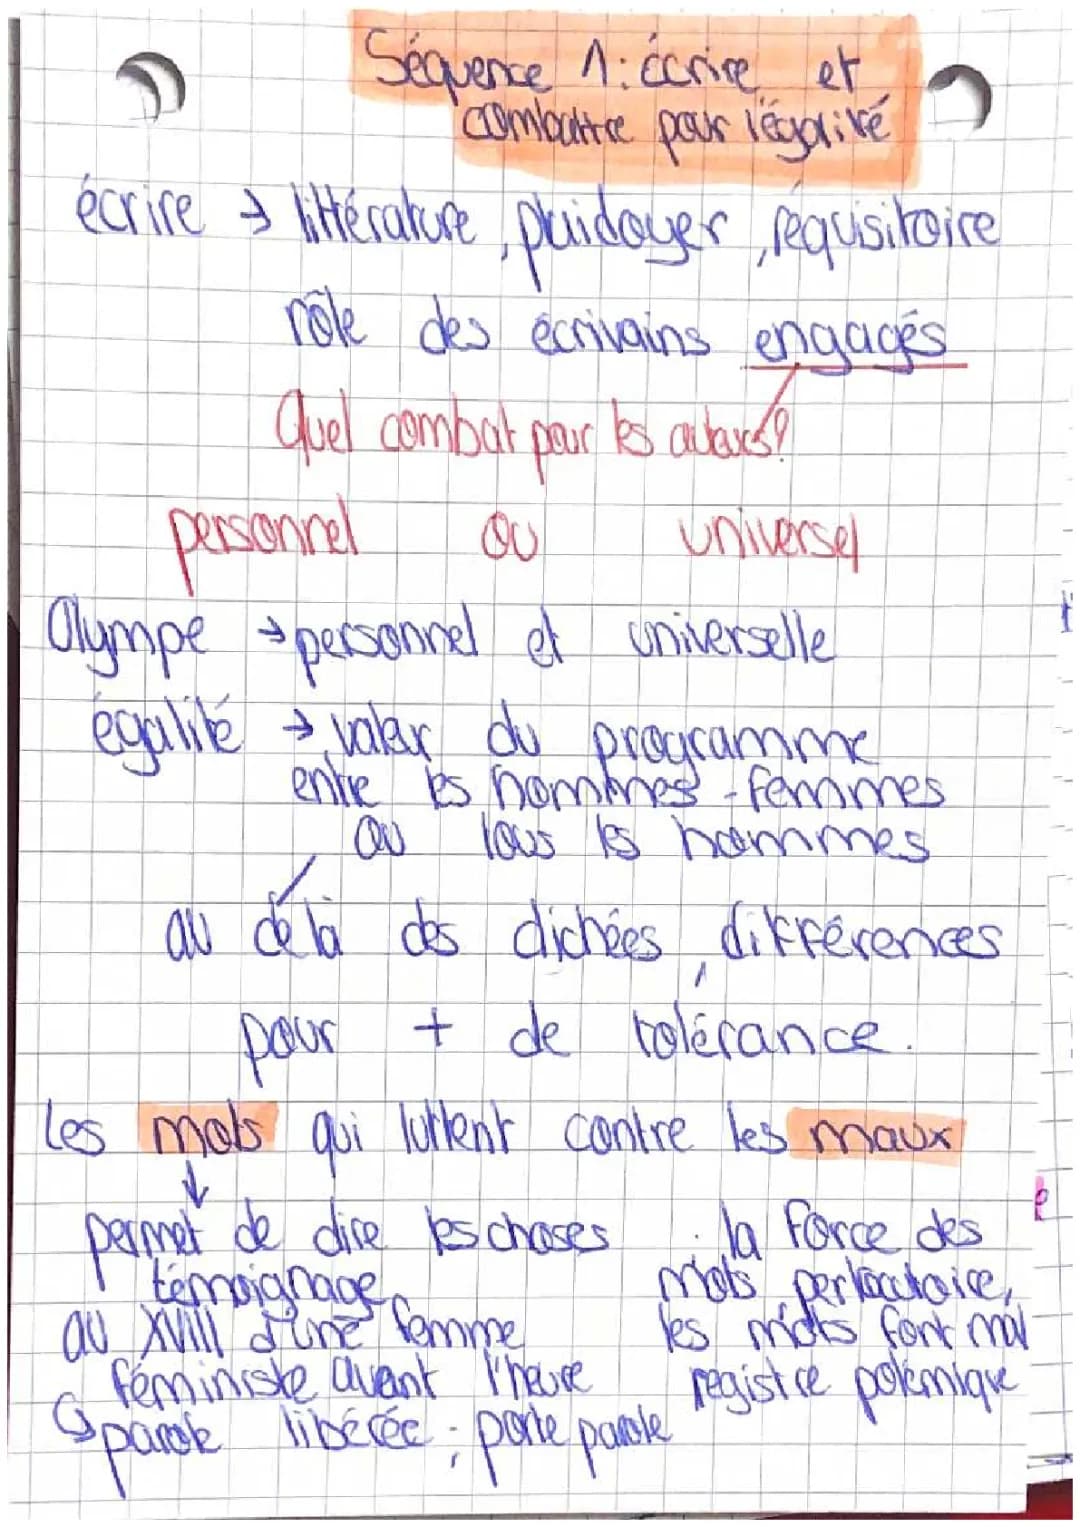 Séquence 1: écrire et
combattre pour l'égalité
écrire → littérature, plaidoyer, réquisitoire
rôle des écrivains engagés
Quel combat pour les auteurs?
personnel ou universel
Olympe → personnel et universelle
égalité → valeur du programme
entre les hommes - femmes
ou tous les hommes
au delà des clichées, différences
pour + de tolérance.
Les mots qui luttent contre les maux
↓
permet de dire les choses
témoignage
au XVIII d'une femme
féministe avant l'heure
↳ parole libérée ; porte parole
la force des
mots perlocutoire,
les mots font mal
registre polémique